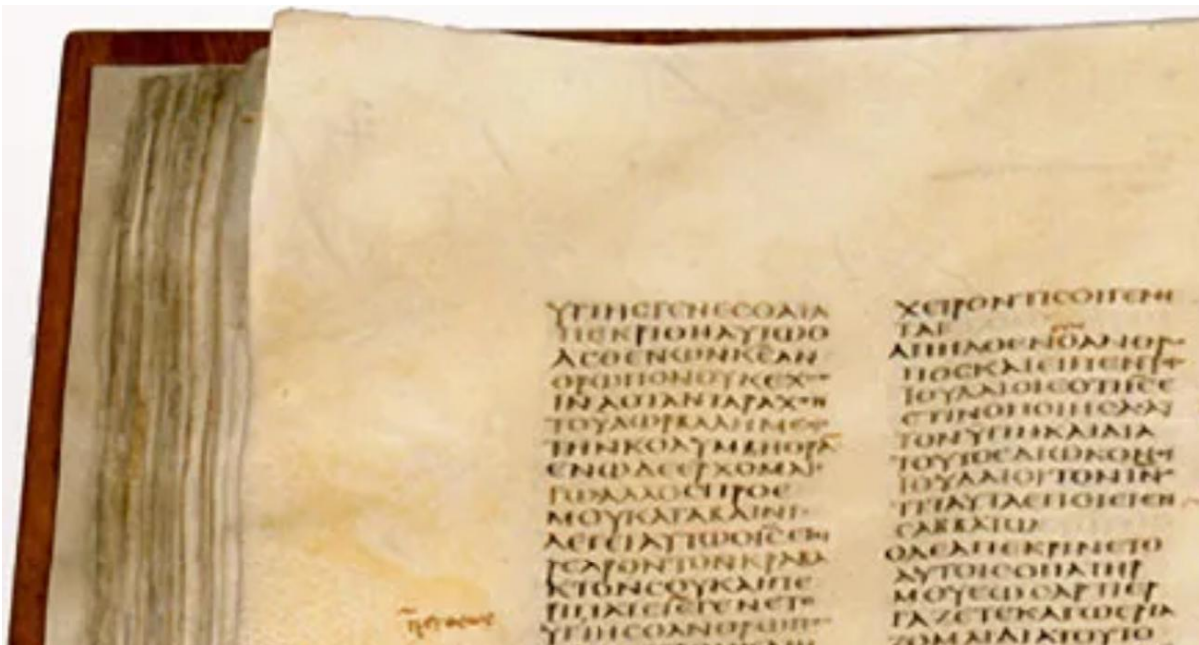 ΥΓΙΗϹΓΕΝΕϹΘΑΙΑ
ΠΕΚΡΙΘΗΑΥΤΩΟ
ΑϹΘΕΝΩΝΚ̅Ε̅ΑΝ
ΘΡΩΠΟΝΟΥΚΕΧΩ
ΙΝΑΟΤΑΝΤΑΡΑΧΘΗ
ΤΟΥΔΩΡΒΑΛΗΜΕ
ΤΗΝΚΟΛΥΜΒΗΘΡΑ
ΕΝΩΔΕΕΡΧΟΜΑΙ
ΓΩΑΛΛΟϹΠΡΟΕ
ΜΟΥΚΑΤΑΒΑΙΝΙ
ΛΕΓΕΙΑΥΤΩΟΙ̅Ϲ̅ΕΓΙ
ΡΕΑΡΟΝΤΟΝΚΡΑΒΑ
ΚΤΟΝϹΟΥΚΑΙΠΕ
ΥΓΙΗϹΟΑΝΘΡΩΠ
ΧΕΙΡΟΝΤΙϹΟΙΓΕΝΗ
ΤΑΙ
ΑΠΗΛΘΕΝΟΑΝΘΡΩ
ΠΟϹΚΑΙΕΙΠΕΝΤ
ΙΟΥΔΑΙΟΙϹΟΤΙΙ̅Ϲ̅Ε
ϹΤΙΝΟΠΟΙΗϹΑϹΑΥ
ΤΟΝΥΓΙΗΚΑΙΔΙΑ
ΤΟΥΤΟΕΔΙΩΚΟΝΟΙ
ΙΟΥΔΑΙΟΙΤΟΝΙ̅Ν̅Ο
ΤΙΤΑΥΤΑΕΠΟΙΕΙΕΝ
ϹΑΒΒΑΤΩ
ΟΔΕΑΠΕΚΡΙΝΕΤΟ
ΑΥΤΟΙϹΟΠΑΤΗΡ
ΜΟΥΕΩϹΑΡΤΙΕΡ
ΓΑΖΕΤΕΚΑΓΩΕΡΓΑ
ΖΟΜΑΙΔΙΑΤΟΥΤΟ